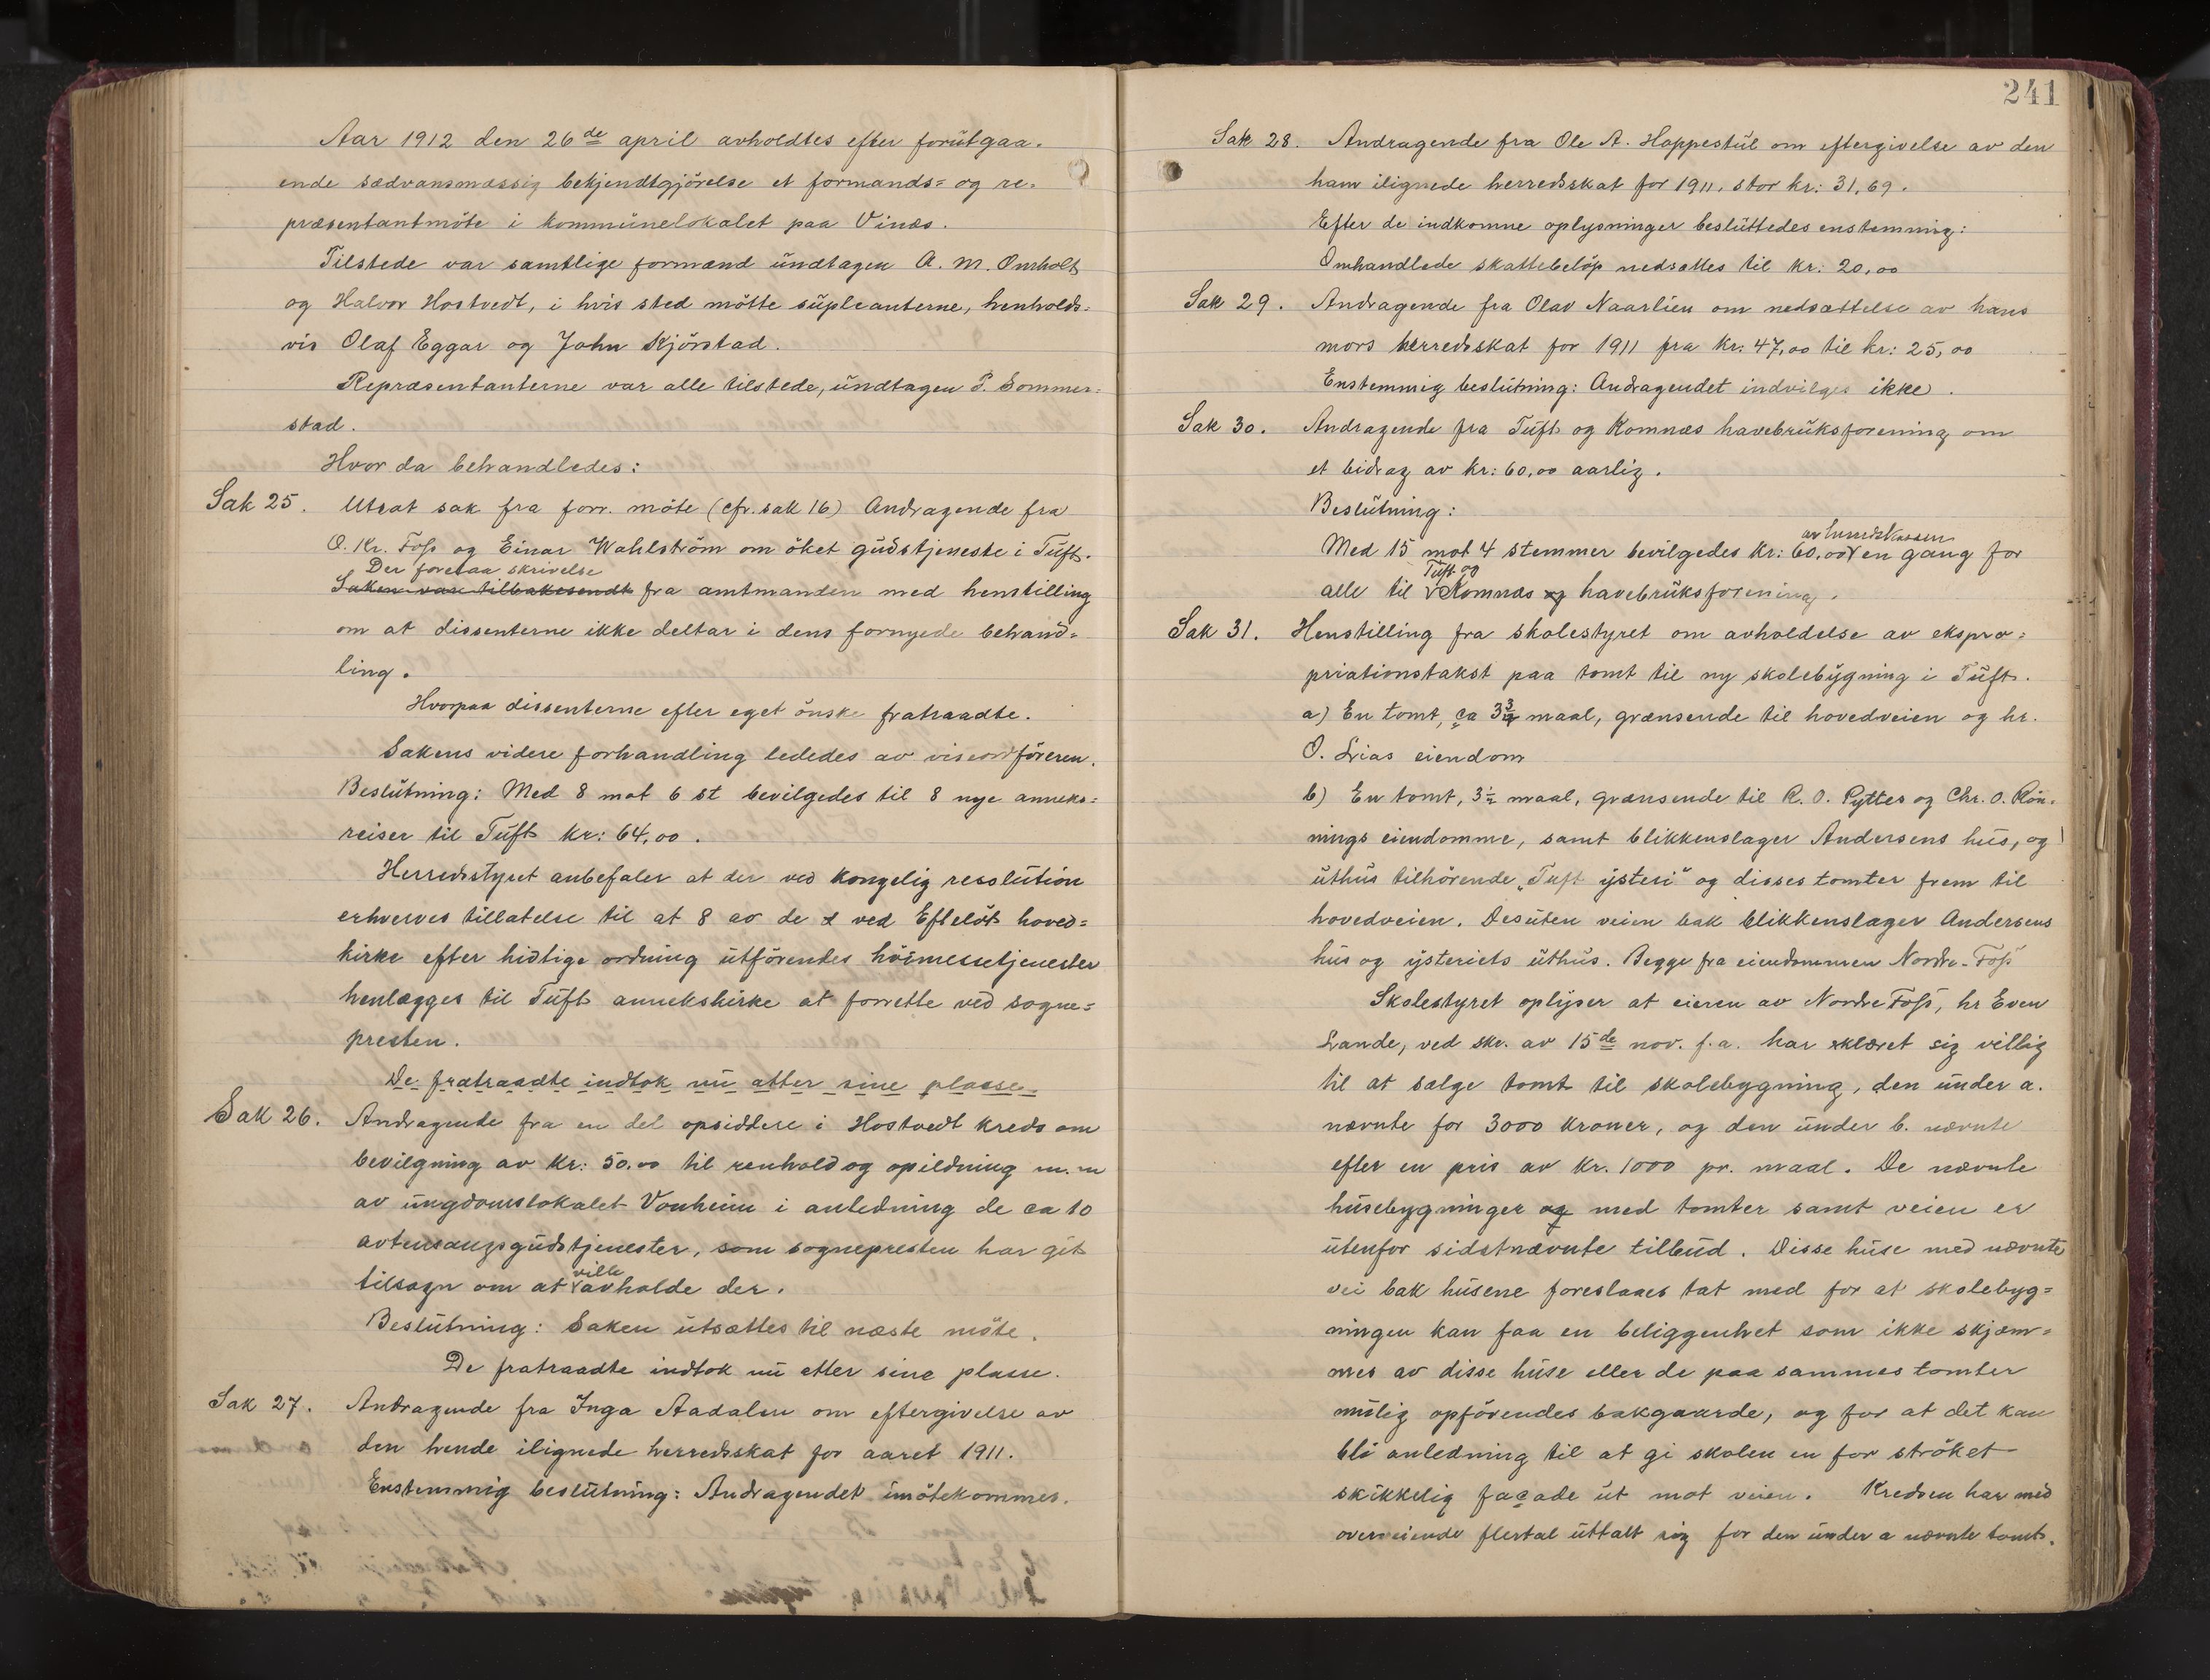 Aar 1912 den 26de april avholdtes efter forutgaa-
ende sædvansmæssig bekjendtgjörelse et formands= og re-
præsentantmöte i kommunelokalet paa Vinæs.
Tilstede var samtlige formænd undtagen A. M. Omholt
og Halvor Hostvedt, i hvis sted mötte supleanterne, henholds-
vis Olaf Eggar og John Skjörstad.
Repræsentanterne var alle tilstede, undtagen P. Sommer-
stad.
Hvor da behandledes:
Sak 25. Utsat sak fra forr. möte (cfr. sak 16) Andragende fra
O. Kr. Foss og Einar Wahlström om öket gudstjeneste i Tuft.
Der forelaa skrivelse
Saken var tilbakesendt fra amtmanden med henstilling
om at dissenterne ikke deltar i dens fornyede behand-
ling.
Hvorpaa dissenterne efter eget önske fratraadte.
Sakens videre forhandling lededes av viseordföreren.
Beslutning: Med 8 mot 6 st bevilgedes til 8 nye anneks-
reiser til Tuft kr: 64,00.
Herredsstyret anbefaler at der ved kongelig resolution
erhverves tillatelse til at 8 av de ved Efteløt hoved-
kirke efter hidtige ordning utförendes höimessetjenester
henlægges til Tuft annekskirke at forrette ved sogne-
presten.
De fratraadte indtok nu atter sine plasse.
Sak 26. Andragende fra en del opsiddere i Hostvedt kreds om
bevilgning av kr: 50.00 til renhold og opildning m.m
av ungdomslokalet Vonheim i anledning de ca 10
avtensangsgudstjenester, som sognepresten har git
tilsagn om at ville avholde der.
Beslutning: Saken utsættes til næste möte.
De fratraadte indtok nu atter sine plasse.
Sak 27. Andragende fra Inga Aadalen om eftergivelse av
den hende ilignede herredsskat for aaret 1911.
Enstemmig beslutning: Andragendet imötekommes.
241
Sak 28. Andragende fra Ole A. Hoppestul om eftergivelse av den
ham ilignede herredsskat for 1911, stor kr: 31,69.
Efter de indkomne oplysninger besluttedes enstemmig:
Omhandlede skattebelöp nedsættes til kr: 20,00
Sak 29. Andragende fra Olav Naarlien om nedsættelse av hans
mors herredsskat for 1911 fra kr: 47,00 til kr: 25,00
Enstemmig beslutning: Andragendet indvilges ikke.
Sak 30. Andragende fra Tuft og Komnæs havebruksforening om
et bidrag av kr: 60,00 aarlig.
Beslutning:
Med 15 mot 4 stemmer bevilgedes kr: 60,00 en gang for
alle til Tuft og Komnæs og havebruksforening.
Sak 31. Henstilling fra skolestyret om avholdelse av ekspro-
priationstakst paa tomt til ny skolebygning i Tuft.
a) En tomt, ca 3 3/4 maal, grænsende til hovedveien og hr.
O. Lias eiendom
b) En tomt, 3 1/2 maal, grænsende til K. O. Pyttes og Chr. O. Rön-
nings eiendomme, samt blikkenslager Andersens hus, og
uthus tilhörende „Tuft ysteri" og disses tomter frem til
hovedveien. Desuten veien bak blikkenslager Andersens
hus og ysteriets uthus. Begge fra eiendommen Nordre-Foss
Skolestyret oplyser at eieren av Nordre Foss, hr Even
Lande, ved skr. av 15de nov. f.a. har erklæret sig villig
til at sælge tomt til skolebygning, den under a.
nævnte for 3000 kroner, og den under b. nævnte
efter en pris av kr. 1000 pr. maal. De nævnte
husebygninger og med tomter samt veien er
utenfor sidstnævnte tilbud. Disse huse med nævnte
vei bak husene foreslaaes tat med for at skolebyg-
ningen kan faa en beliggenhet som ikke skjæm-
mes av disse huse eller de paa sammes tomter
mulig opförendes bakgaarde, og for at det kan
bli anledning til at gi skolen en for ströket
skikkelig façade ut mot veien. Kredsen har med
overveiende flertal uttalt sig for den under a nævnte tomt.